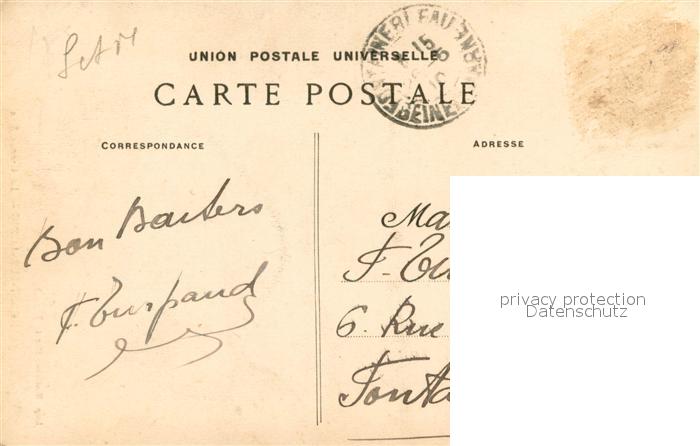 UNION POSTALE UNIVERSELLE
CARTE POSTALE
CORRESPONDANCE
ADRESSE
Bon Baisers
F. Turpaud
Ma
F. Tu
6. Rue
Fonta
privacy protection
Datenschutz